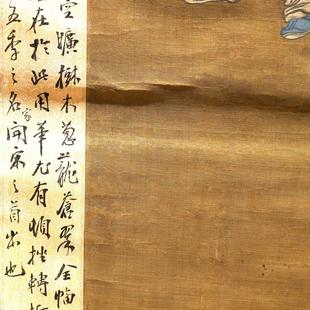 空曠樹木蔥蘢蒼翠全幅
在於此用筆尤有頓挫轉折
五季之名家開宋之首出也